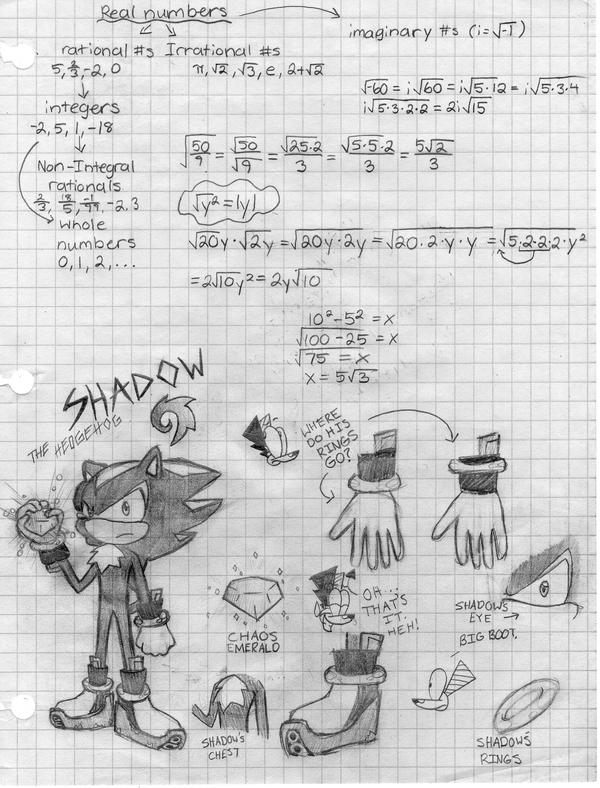 Real numbers
imaginary #s (i=√-1)
rational #s Irrational #s
5, 2/3, -2, 0
π, √2, √3, e, 2+√2
integers
-2, 5, 1, -18
Non-Integral
rationals
2/3, 18/5, -1/99, -2.3
whole
numbers
0, 1, 2, ...
√-60 = i√60 = i√5·12 = i√5·3·4
i√5·3·2·2 = 2i√15
√50/9 = √50/√9 = √25·2/3 = √5·5·2/3 = 5√2/3
√y² = |y|
√20y·√2y = √20y·2y = √20·2·y·y = √5·2·2·2·y²
=2√10y² = 2y√10
10²-5² = x
√100-25 = x
√75 = x
x = 5√3
SHADOW
THE HEDGEHOG
WHERE
DO HIS
RINGS
GO?
CHAOS
EMERALD
OH...
THAT'S
IT.
HEH!
SHADOW'S
EYE
BIG BOOT.
SHADOW'S
CHEST
SHADOW'S
RINGS